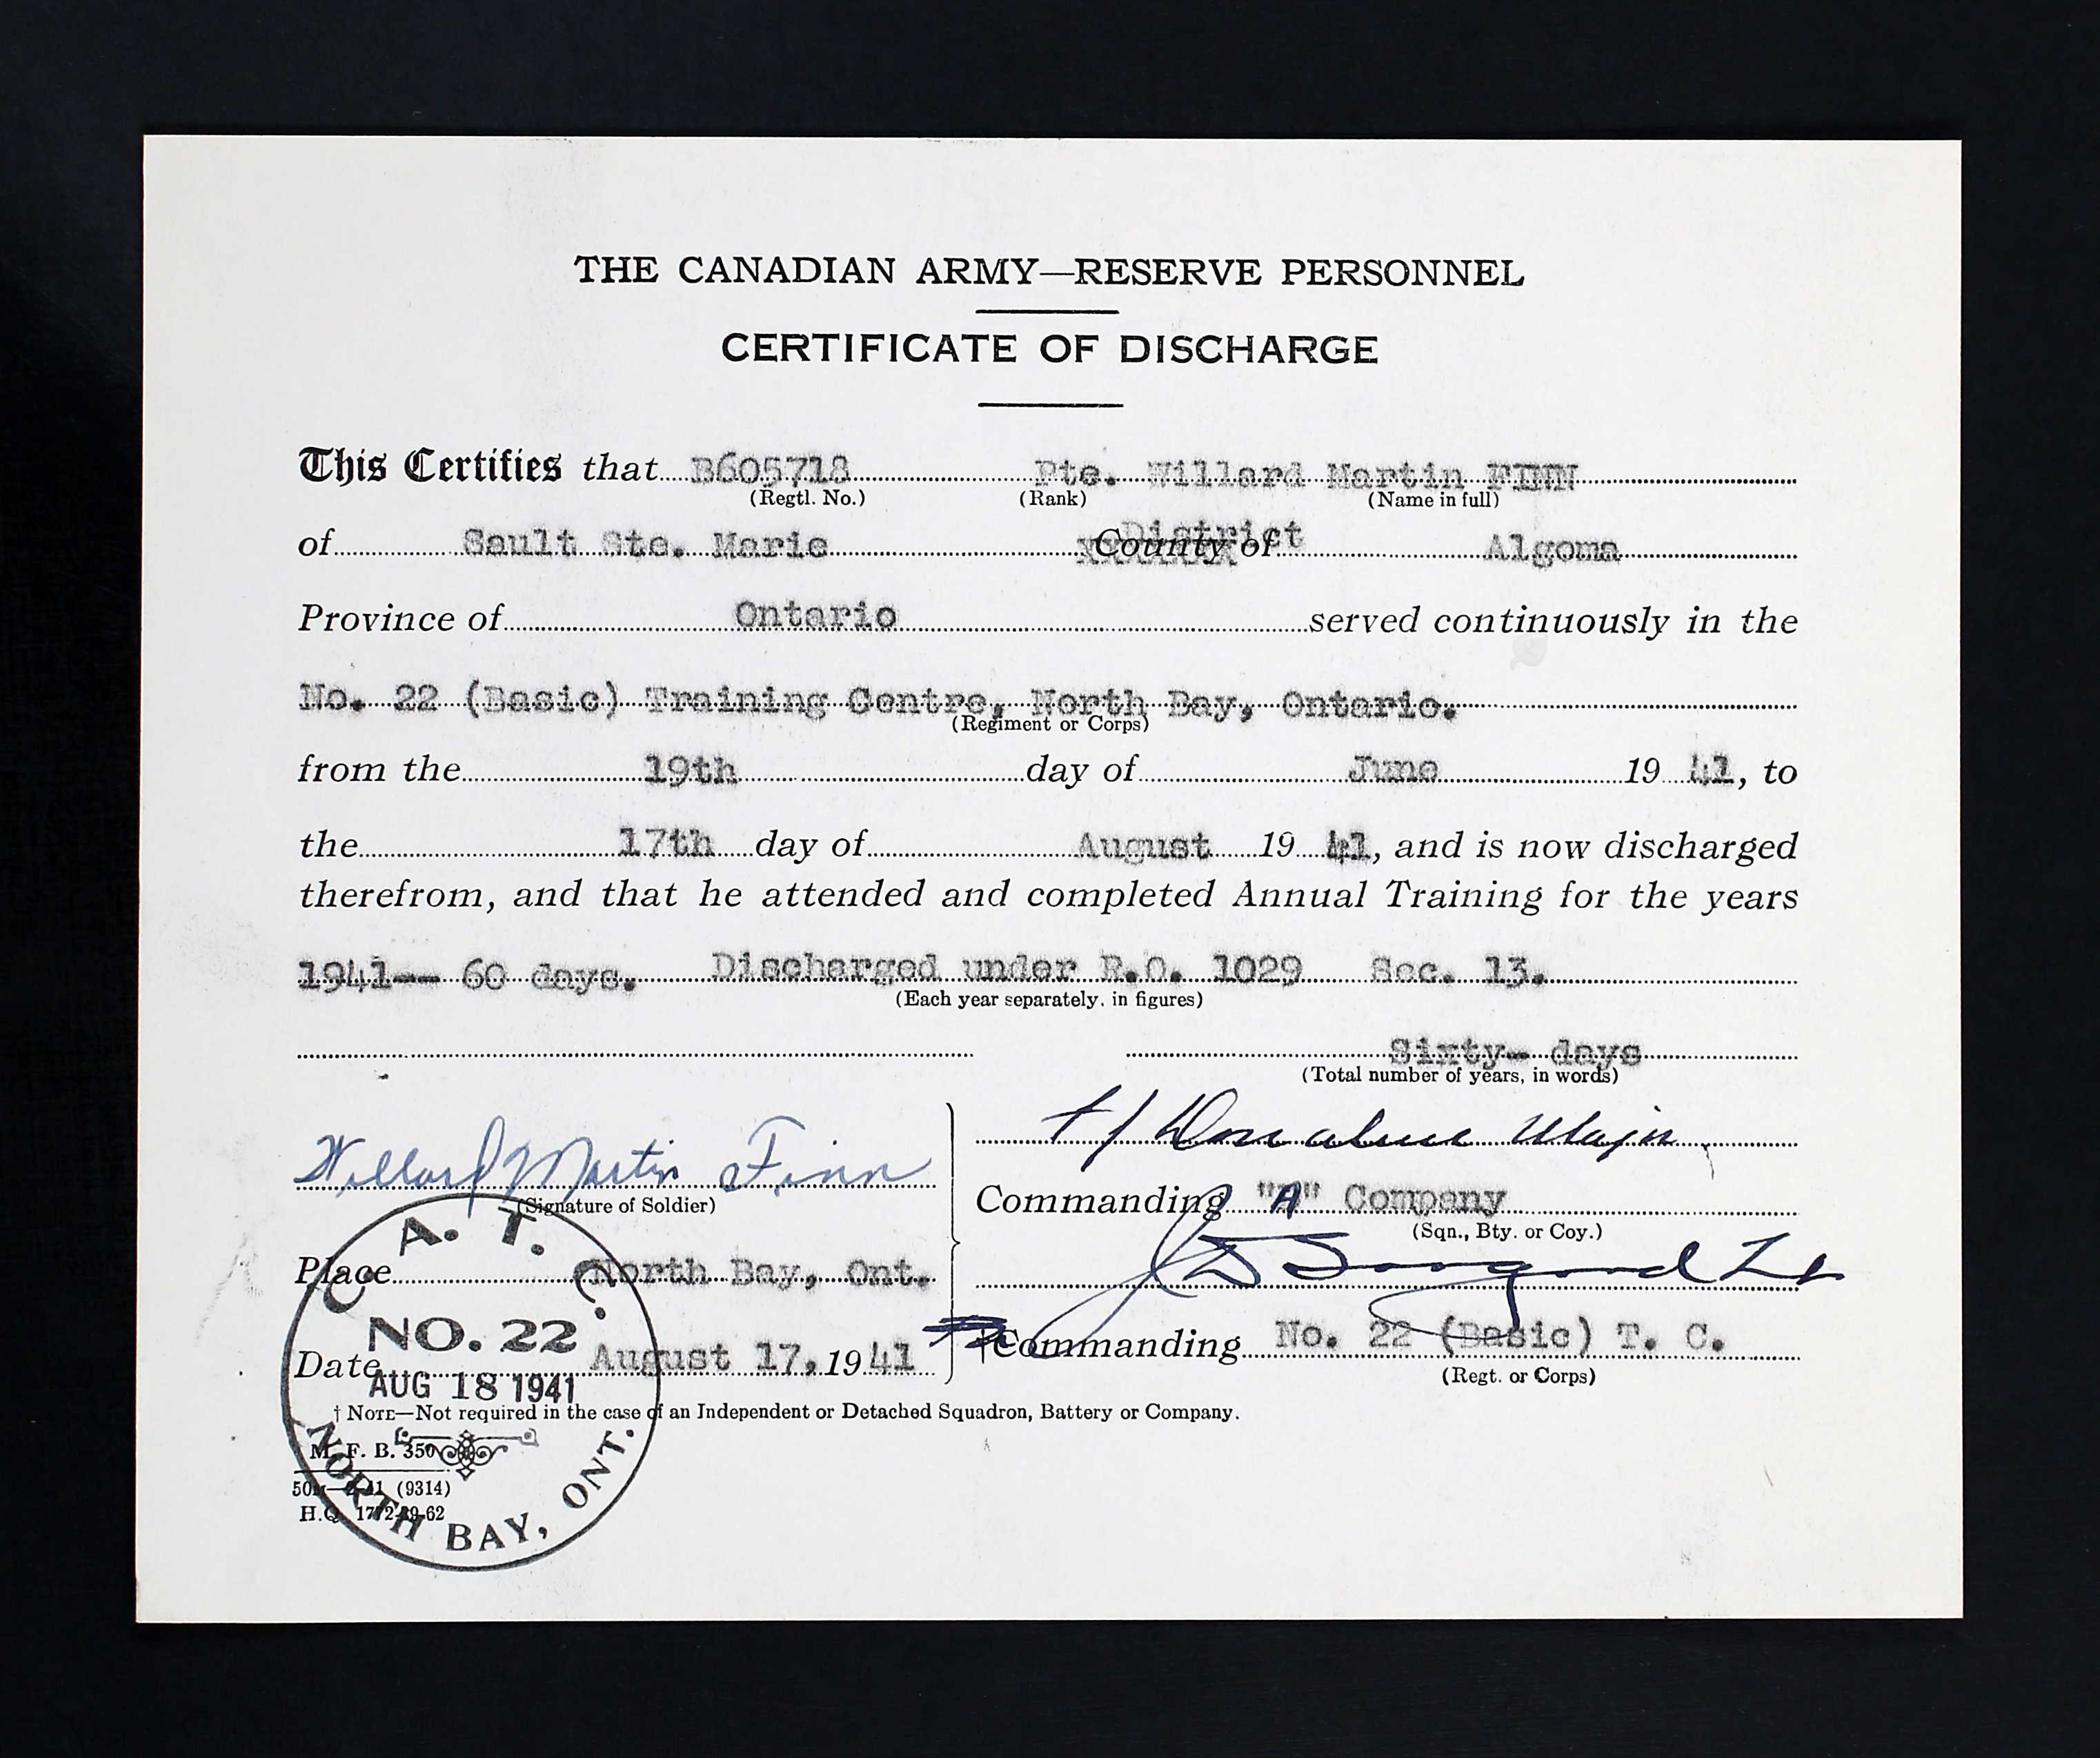 THE CANADIAN ARMY—RESERVE PERSONNEL
CERTIFICATE OF DISCHARGE
This Certifies that B605718 Pte. Willard Martin FINN
(Regtl. No.) (Rank) (Name in full)
of Sault Ste. Marie County of District Algoma
Province of Ontario served continuously in the
No. 22 (Basic) Training Centre, North Bay, Ontario.
(Regiment or Corps)
from the 19th day of June 19 41, to
the 17th day of August 19 41, and is now discharged
therefrom, and that he attended and completed Annual Training for the years
1941-- 60 days. Discharged under R.O. 1029 Sec. 13.
(Each year separately, in figures)
Sixty- days
(Total number of years, in words)
Willard Martin Finn
(Signature of Soldier)
Major
Commanding "A" Company
(Sqn., Bty. or Coy.)
Place North Bay, Ont.
†Commanding No. 22 (Basic) T. C.
(Regt. or Corps)
Date August 17, 19 41
C. A. T. C.
NO. 22
AUG 18 1941
NORTH BAY, ONT.
† NOTE—Not required in the case of an Independent or Detached Squadron, Battery or Company.
M. F. B. 350
(9314)
H.Q. 1772-39-62